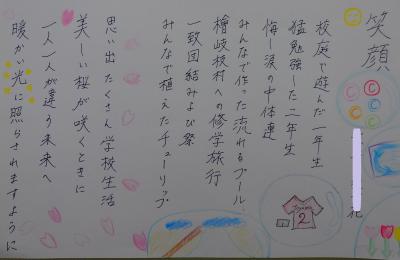 笑顔
花
校庭で遊んだ一年生
猛勉強した二年生
悔し涙の中体連
みんなで作った流れるプール
檜岐枝村への修学旅行
一致団結みよび祭
みんなで植えたチューリップ
思い出たくさん学校生活
美しい桜が咲くときに
一人一人が違う未来へ
暖かい光に照らされますように
2